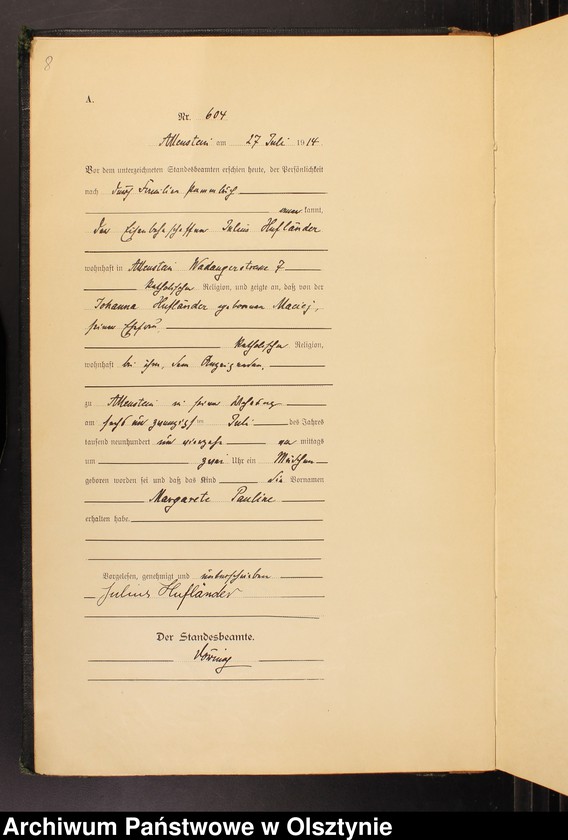 8
A.
Nr. 604
Allenstein am 27 Juli 1914
Vor dem unterzeichneten Standesbeamten erschien heute, der Persönlichkeit
nach durch Familien Stammbuch
anerkannt,
der Julius Hufländer
wohnhaft in Allenstein Wadangerstrasse 7
katholischer Religion, und zeigte an, daß von der
Johanna Hufländer geborenen Maciej,
seiner Ehefrau
katholischer Religion,
wohnhaft bei ihm, dem Anzeigenden,
zu Allenstein in seiner Wohnung
am sechs und zwanzigsten Juli des Jahres
tausend neunhundert und vierzehn mittags
um zwei Uhr ein Mädchen
geboren worden sei und daß das Kind die Vornamen
Margarete Pauline
erhalten habe.
Vorgelesen, genehmigt und unterschrieben
Julius Hufländer
Der Standesbeamte.
Archiwum Państwowe w Olsztynie